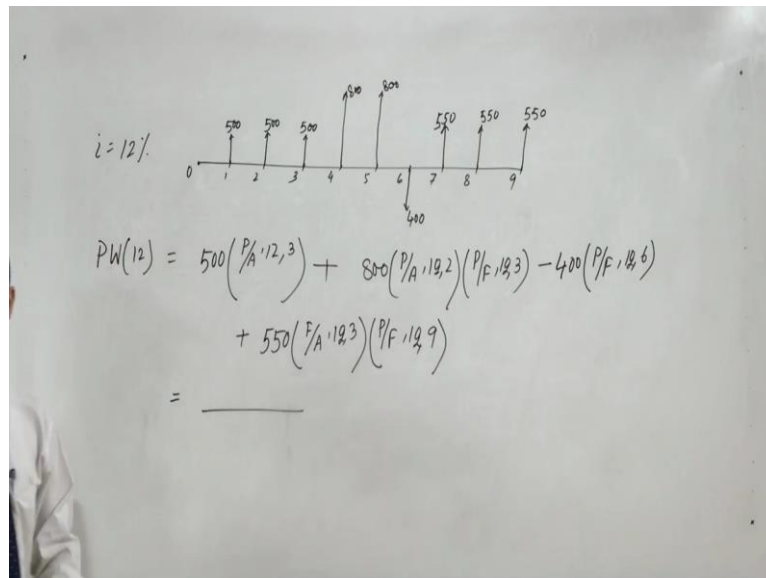 800 800
500 500 500 550 550 550
i = 12%.
0 1 2 3 4 5 6 7 8 9
400
PW(12) = 500(P/A, 12, 3) + 800(P/A, 12, 2)(P/F, 12, 3) - 400(P/F, 12, 6)
+ 550(F/A, 12, 3)(P/F, 12, 9)
=